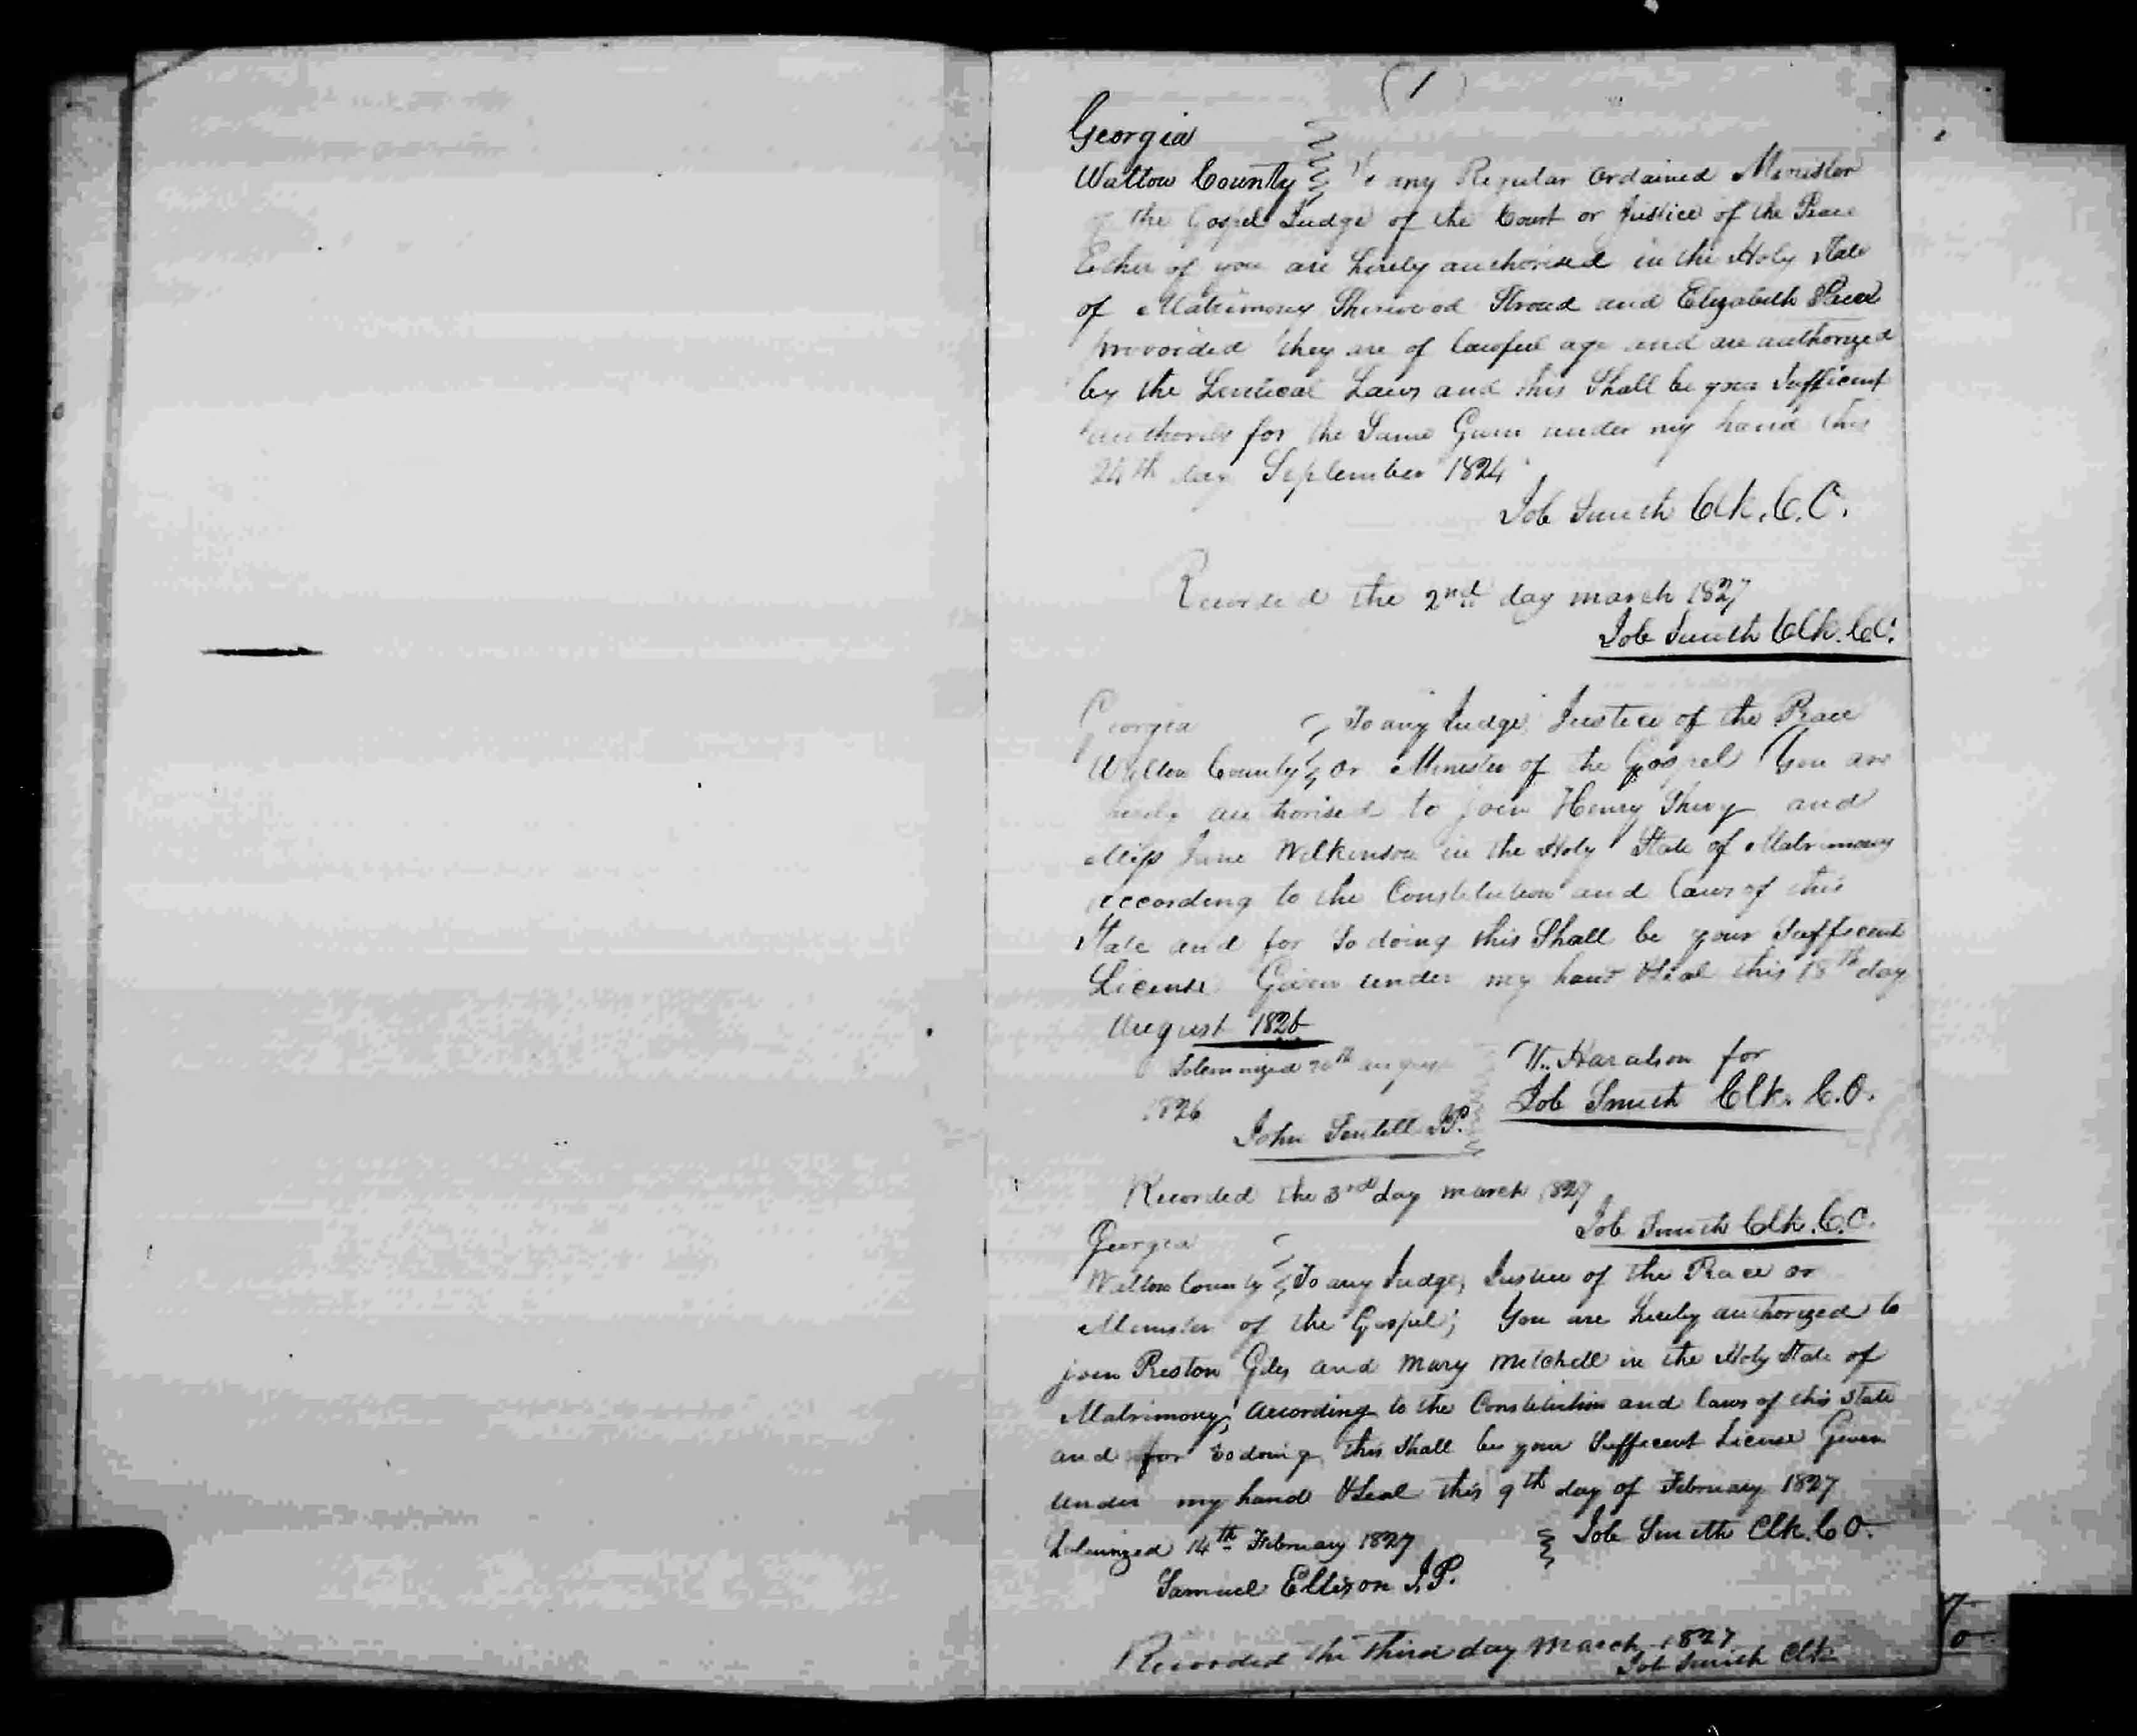 (1)
Georgia
Walton County } To any Regular Ordained Minister
of the Gospel Judge of the Court or Justice of the Peace
Either of you are hereby authorised in the Holy State
of Matrimony Sherwood Stroud and Elizabeth
provoided they are of lawful age and are authorized
by the Levitical Laws and this Shall be your Sufficient
authority for the Same Given under my hand this
24th day September 1824
Job Smith Clk. C. C.
Recorded the 2nd day march 1827
Job Smith Clk. CC.
Georgia } To any Judge Justice of the Peace
Walton County } or Minister of the Gospel You are
hereby authorised to join Henry and
Miss Jane Wilkinson in the Holy State of Matrimony
according to the Constitution and laws of this
State and for So doing this Shall be your Sufficent
License Given under my hand & Seal this 18th day
August 1826
Solemnized 20th august
1826
W. Haralson for
Job Smith Clk. C. O.
John Sentell JP.
Recorded the 3rd day march 1827
Job Smith Clk. C. C.
Georgia
Walton County } To any Judge, Justice of the Peace or
Minister of the Gospel; You are hereby authorized to
join Preston Giles and Mary Mitchell in the Holy State of
Matrimony, according to the Constitution and laws of this State
and for So doing this Shall be your Sufficent License Given
under my hand & Seal this 9th day of February 1827
Solemnized 14th February 1827 } Job Smith Clk. C O.
Samuel Ellison J. P.
Recorded the third day March 1827
Job Smith Clk